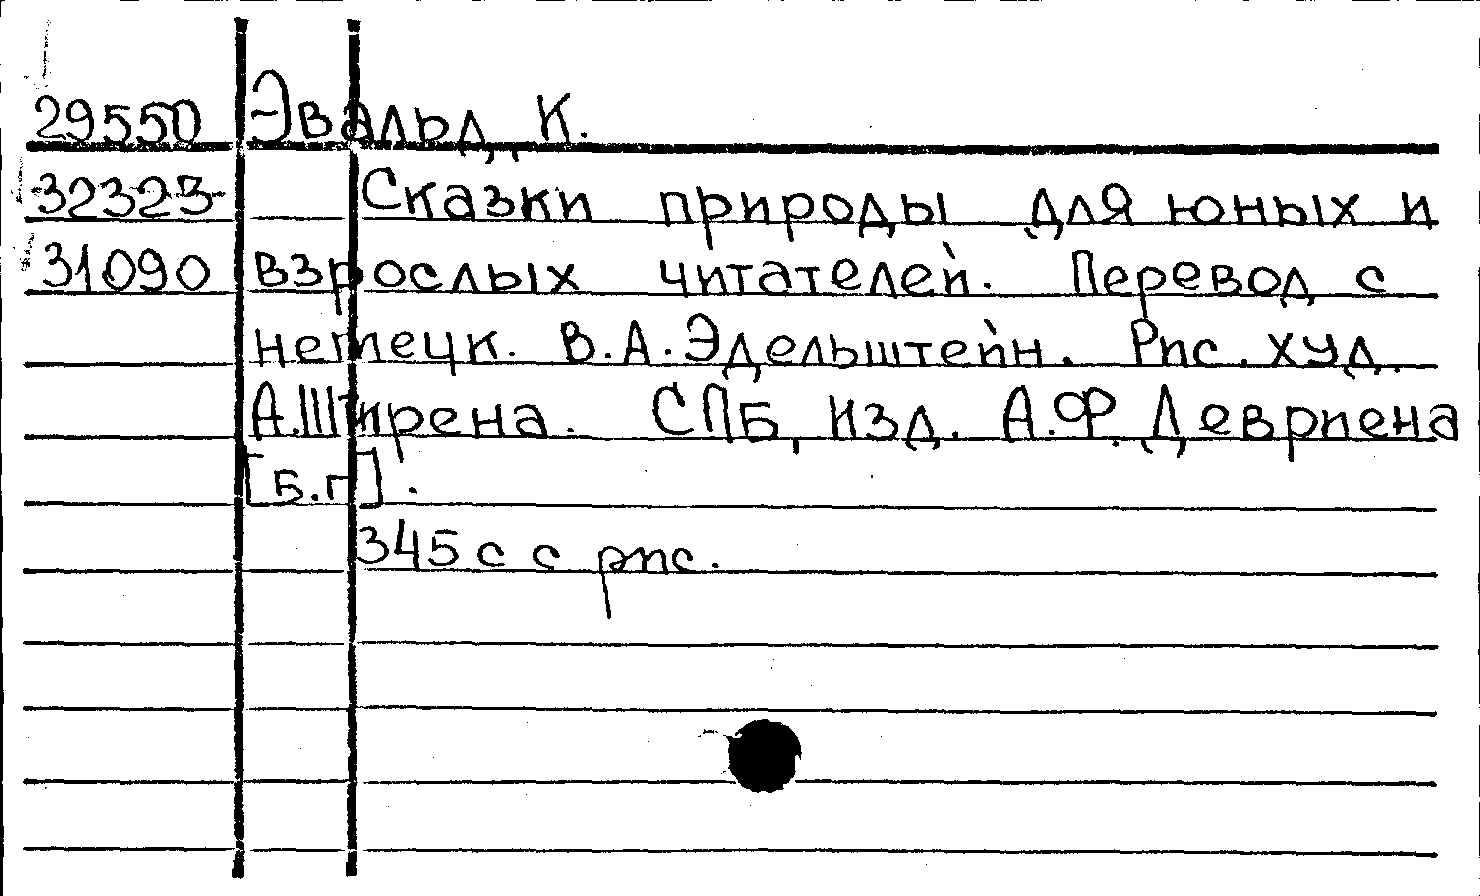 29550 Эвальд, К.
32323 Сказки природы для юных и
31090 взрослых читателей. Перевод с
немецк. В.А.Эдельштейн. Рис. худ.
А.Штирена. СПБ, Изд. А.Ф. Девриена
[Б.г].
345 с с рис.